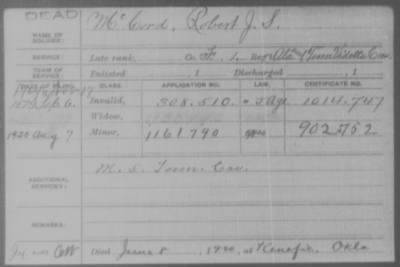 DEAD
NAME OF SOLDIER: McCord, Robert J. S.
SERVICE: Late rank, Co. F, 1, Reg't Ala & Tenn Vidette Cav.
TERM OF SERVICE: Enlisted , 1 Discharged , 1
DATE OF FILING. CLASS. APPLICATION NO. LAW. CERTIFICATE NO.
Sep 6. Invalid, 308.510. 1014.747
Widow,
1920 Aug 7 Minor, 1161790 902.752.
ADDITIONAL SERVICES: M. S. Tenn. Cav.
REMARKS:
Died June 8, 1920, at Kenefic, Okla